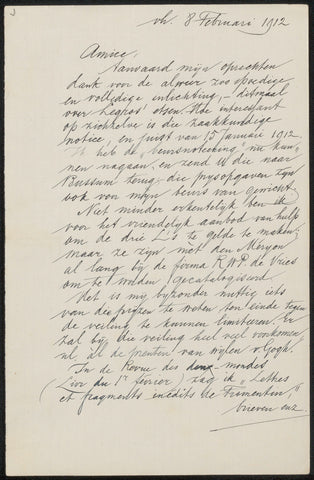 vh. 8 Februari 1912
Amice,
Aanvaard mijn oprechten
dank voor de alweer zoo spoedige
en volledige inlichting, – ditmaal
over Legros' etsen. Hoe interessant
op zichzelve is die zaakkundige
notice, en juist van 15 Januarie 1912.
Ik heb de beursnoteering nu kun-
nen nagaan, en zend U die naar
Bussum terug; die prysopgaven zyn
ook voor myn beurs van gewicht.
Niet minder erkentelyk ben ik
voor het vriendelyk aanbod van hulp
om de drie L's te gelde te maken;
maar ze zyn met den Méryon
al lang by de firma R.W.P. de Vries
om te worden gecatalogiseerd.
Het is my byzonder nuttig iets
van de prijzen te weten ten einde tegen
de veiling te kunnen limiteeren. Er
zal by die veiling heel veel voorkomen,
nl. al de prenten van wylen v. Gogh.
In de Revue des deux-mondes
(Livr du 1er février) zag ik „Lettres
et fragments inédits de Fromentin,"
brieven enz.